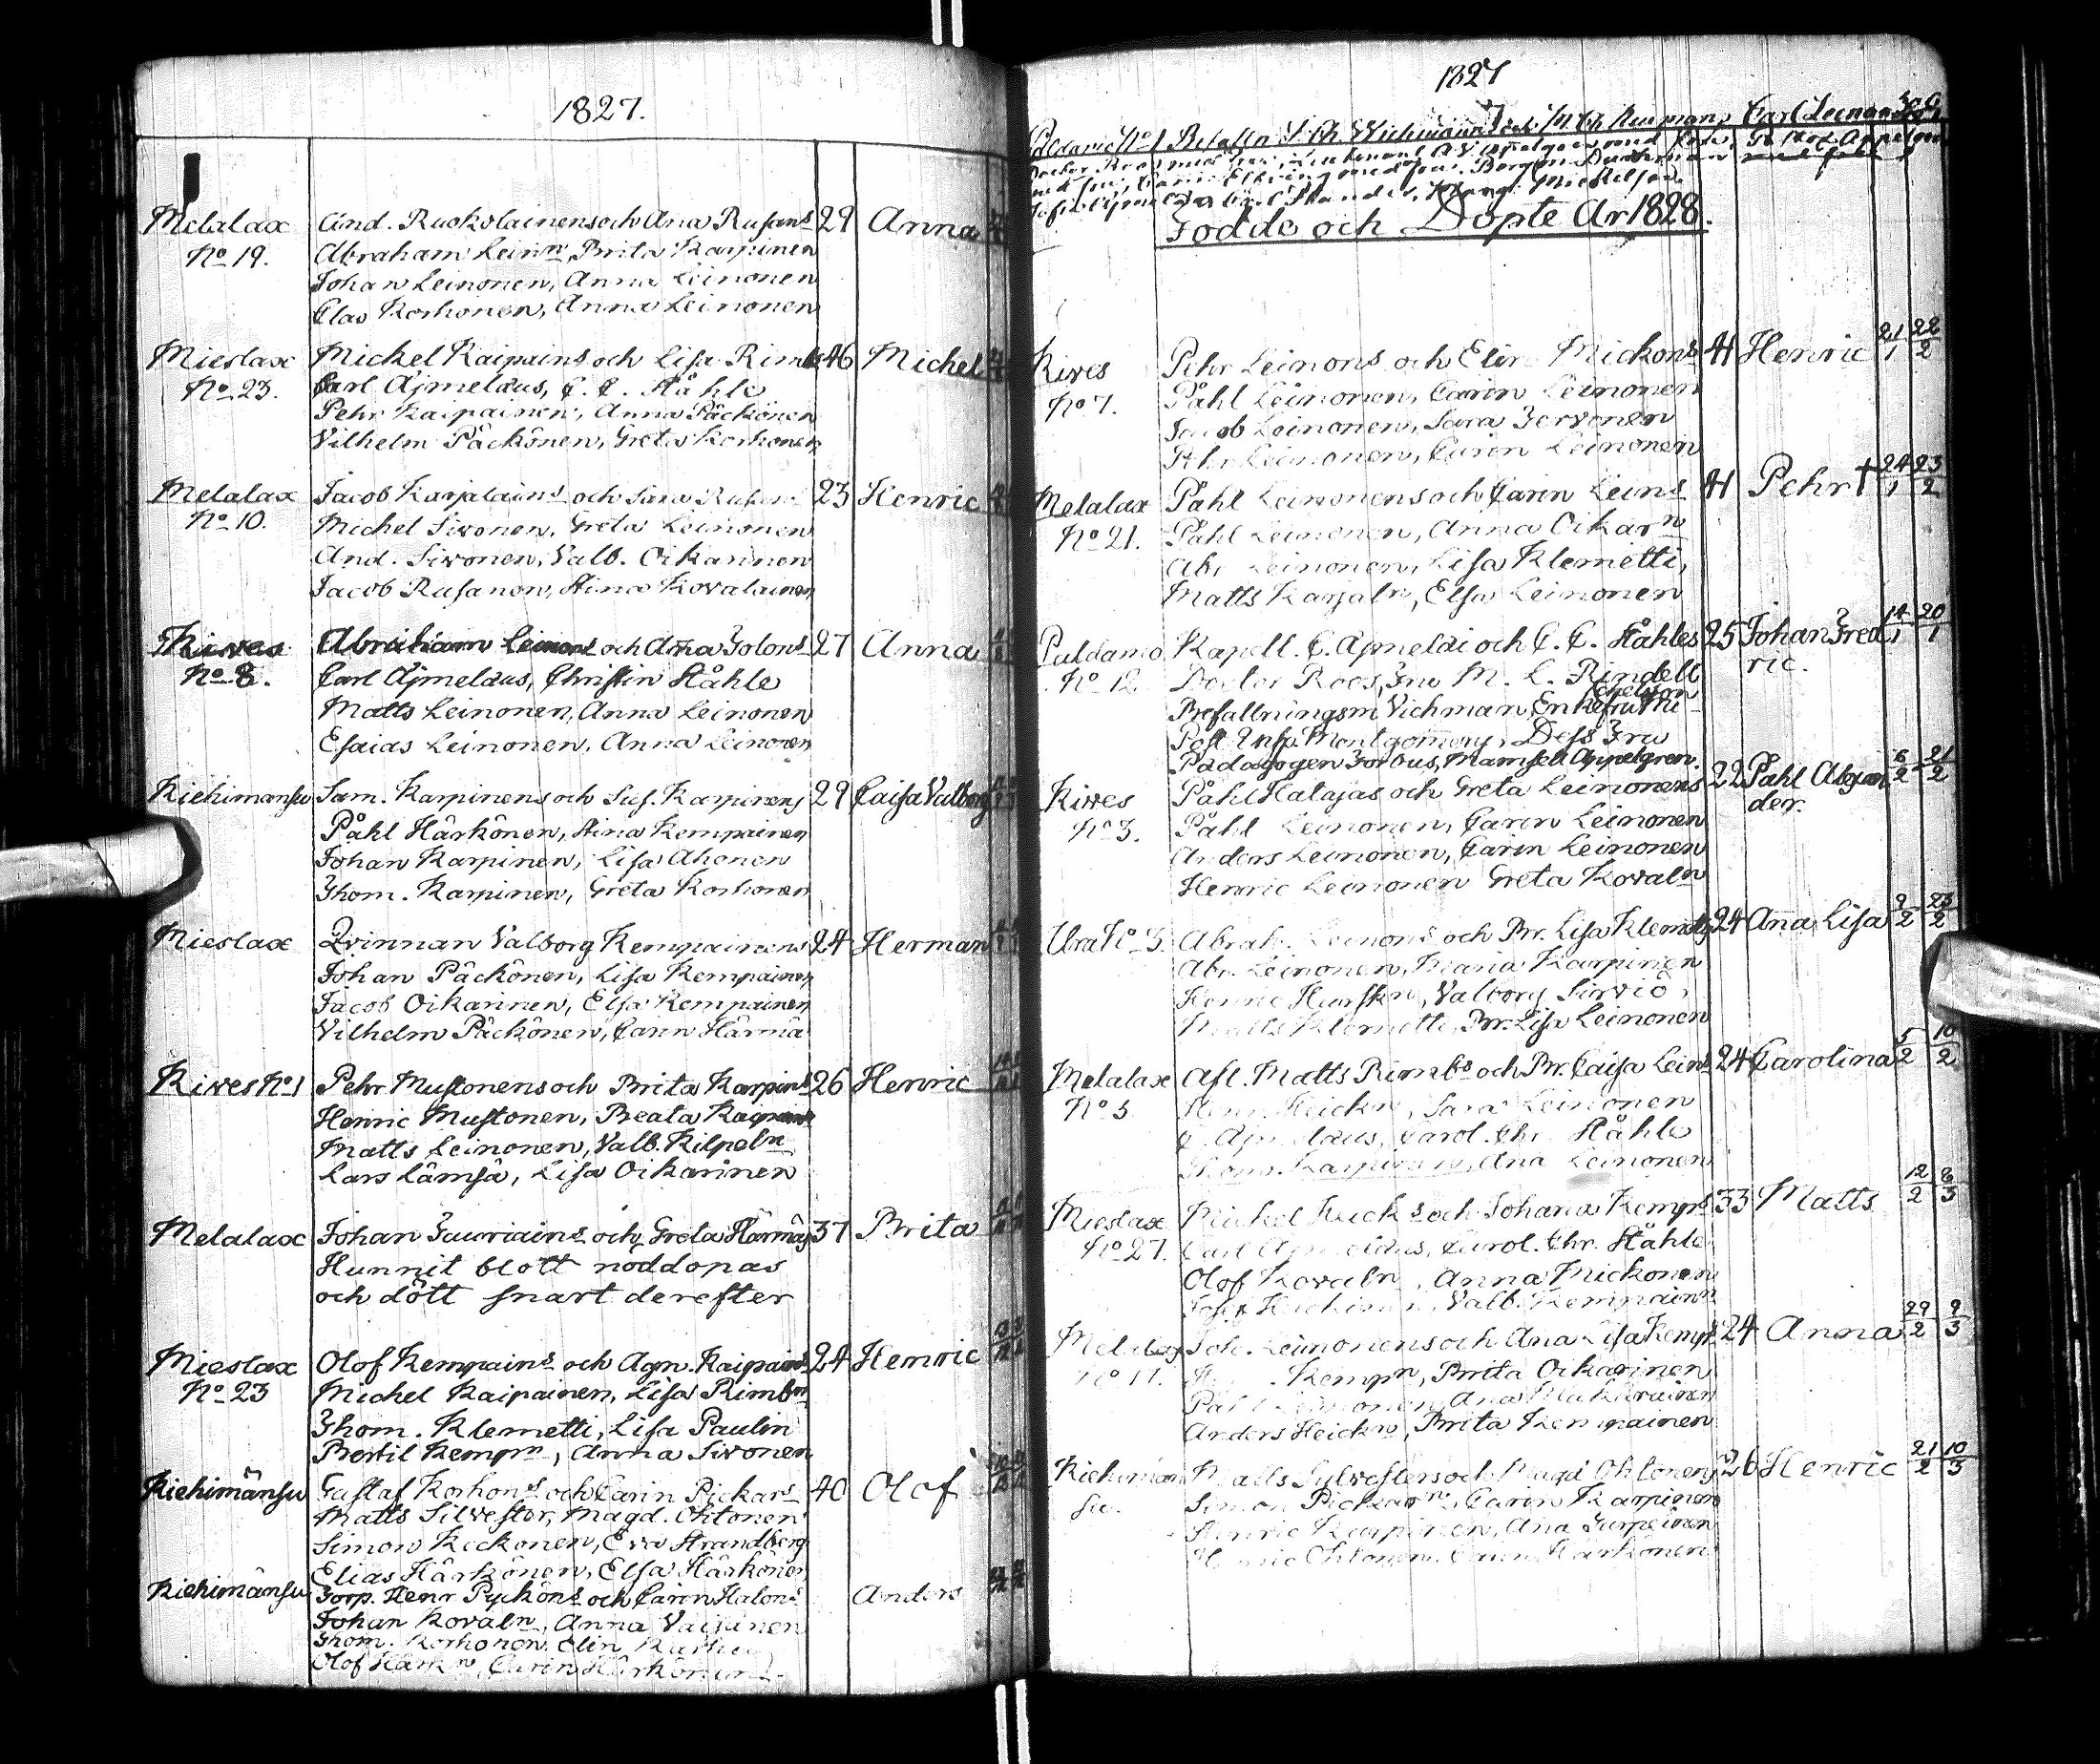 1827.
Melalax And. Ruokolainens och Ana Rusans 29 Anna
No 19. Abraham Lein.n, Brita Karpinen
Johan Leinonen, Anna Leinonen
Clas Korhonen, Anna Leinonen
Mieslax Mickel Kaipains och Lisa Rimb 46 Michel
No 23. Carl Ajmelæus, C. C. Ståhle
Pehr Kaipainen, Anna Päckönen
Vilhelm Päckönen, Greta Korhonen
Melalax Jacob Karjalains och Sara 23 Henric
No 10. Michel Sivonen, Greta Leinonen
And. Sivonen, Valb. Oikarinen
Jacob Rusanen, Stina Kovalainen
Kives Abraham Leinons och Anna Tolons 27 Anna
No 8. Carl Ajmelæus, Christin Ståhle
Matts Leinonen, Anna Leinonen
Esaias Leinonen, Anna Leinonen
Kiehimänsu Sam. Karpinens och Sus. Karpinens 29 Caisa Valborg
Påhl Härkönen, Stina Kempainen
Johan Karpinen, Lisa Ahonen
Thom. Karpinen, Greta Korhonen
Mieslax Qvinnan Valborg Kempainens 24 Herman
Johan Päckönen, Lisa Kempainen
Jacob Oikarinen, Elsa Kempainen
Vilhelm Päckönen, Carin Härmä
Kives No 1 Pehr Mustonens och Brita Karpins 26 Henric
Henric Mustonen, Beata Kaipain
Matts Leinonen, Valb. Kilpeln
Lars Lämsä, Lisa Oikarinen
Melalax Johan Tauriains och Greta Härmäs 37 Brita
Hunnit blott nöddöpas
och dött snart derefter
Mieslax Olof Kempains och Agn. Kaipains 24 Henric
No 23 Michel Kaipainen, Lisa Rimbn
Thom. Klemetti, Lisa Paulin
Bertil Kempn, Anna Sivonen
Kiehimänsu Gustaf Korhons och Carin Pickars 40 Olof
Matts Silvester, Magd. Ohtonen
Simon Keckonen, Eva Strandberg
Elias Härkönen, Elsa Härkönen
Kiehimänsu Torp. Henr Pyyköns och Carin Halons Anders
Johan Kovaln, Anna Väisänen
Thom. Korhonen, Elin
Olof Härkn, Carin Härkönen
1827
Paldamo No 1 Befalln Carl
Doctor Roos med fru, Lieutenant
Födde och Döpte År 1828.
Kives Pehr Leinons och Elin Mickons 41 Henric 21/1 22/2
No 7. Påhl Leinonen, Carin Leinonen
Jacob Leinonen, Sara Tervonen
Pehr Leinonen, Carin Leinonen
Melalax Påhl Leinonens och Carin Leins 41 Pehr † 24/1 23/2
No 21. Påhl Leinonen, Anna Oikarn
Abr Leinonen, Lisa Klemetti,
Matts Karjaln, Elsa Leinonen
Paldamo Kapell. C. Ajmelæi och C. C. Ståhles 25 Johan Fred 14/1 20/1
No 12 Doctor Roos, Fru M. L. Rindell ric.
Befallningsm Vichman, Enkefru Mi
chelson
Post Insp. Montgomery, Dess Fru
Pædagogen Forbus, Mamsell Appelgren.
Kives Påhl Hatajas och Greta Leinonens 22 Påhl Alexan 6/2 21/2
No 3. Påhl Leinonen, Carin Leinonen der.
Anders Leinonen, Carin Leinonen
Henric Leinonen Greta Kovaln
Ura No 3. Abrah. Leinons och Br. Lisa Klemettis 24 Ana Lisa 2/2 23/2
Abr. Leinonen, Maria Karpinen
Henric Hursken, Valborg Sirviö,
Matts Klemetti, Br. Lisa Leinonen
Melalax Afl. Matts Rimbs och Br. Caisa Leins 24 Carolina 5/2 10/2
No 5 Henr. Heickn, Sara Leinonen
C. Ajmelæus, Carol. Chr. Ståhle
Thom. Karpinen, Ana Leinonen
Mieslax Michel Huck s och Johana Kemps 33 Matts 12/2 8/3
No 27. Carl Ajmelæus, Carol. Chr. Ståhle
Olof Kovaln, Anna Mickonen
Valb. Kempainn
Melalax Joh. Leinonens och Ana Lisa Kemps 24 Anna 29/2 9/3
No 11. Kempn, Brita Oikarinen
Påhl Leinonen, Ana
Anders Heickn, Brita Kempainen
Kiehimän Matts Sylvesters och Magd Ohtonens 26 Henric 21/2 10/3
su. Simon Pickarn, Carin Karpinen
Henric Karpinen, Ana Turpeinen
Henric Ohtonen, Carin Härkönen